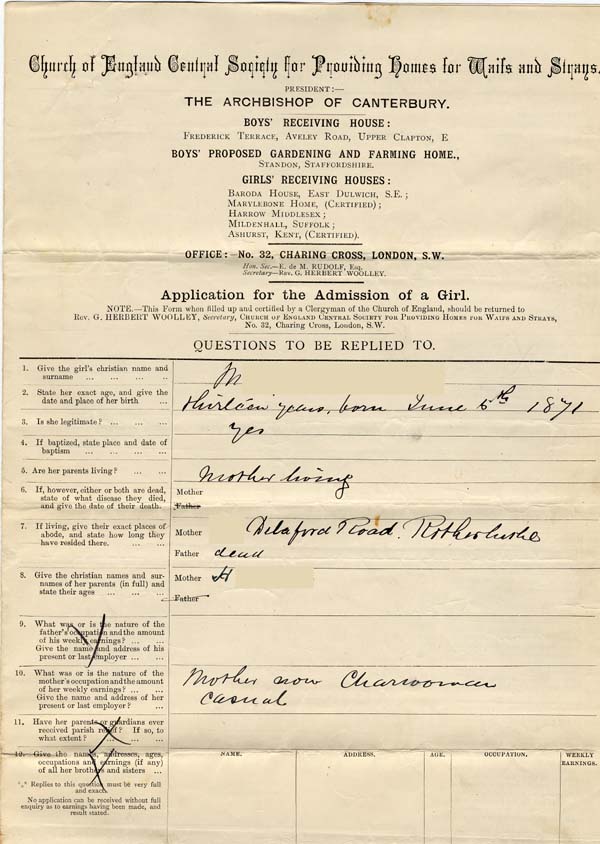 Church of England Central Society for Providing Homes for Waifs and Strays.
PRESIDENT:—
THE ARCHBISHOP OF CANTERBURY.
BOYS' RECEIVING HOUSE:
FREDERICK TERRACE, AVELEY ROAD, UPPER CLAPTON, E
BOYS' PROPOSED GARDENING AND FARMING HOME.,
STANDON, STAFFORDSHIRE.
GIRLS' RECEIVING HOUSES:
BARODA HOUSE, EAST DULWICH, S.E.;
MARYLEBONE HOME, (CERTIFIED);
HARROW MIDDLESEX;
MILDENHALL, SUFFOLK;
ASHURST, KENT, (CERTIFIED).
OFFICE:—No. 32, CHARING CROSS, LONDON, S.W.
Hon. Sec.—E. de M. RUDOLF, Esq.
Secretary—Rev. G. HERBERT WOOLLEY.
Application for the Admission of a Girl.
NOTE.—This Form when filled up and certified by a Clergyman of the Church of England, should be returned to
Rev. G. HERBERT WOOLLEY, Secretary, CHURCH OF ENGLAND CENTRAL SOCIETY FOR PROVIDING HOMES FOR WAIFS AND STRAYS,
No. 32, Charing Cross, London, S.W.
QUESTIONS TO BE REPLIED TO.
1. Give the girl's christian name and
surname ... ... ... ...
M
2. State her exact age, and give the
date and place of her birth ...
thirteen years, born June 5th 1871
3. Is she legitimate? ... ... ...
yes
4. If baptized, state place and date of
baptism ... ... ... ...
5. Are her parents living? ... ...
Mother living
6. If, however, either or both are dead,
state of what disease they died,
and give the date of their death.
Mother
Father
7. If living, give their exact places of
abode, and state how long they
have resided there. ... ...
Mother Delaford Road. Rotherhithe
Father dead
8. Give the christian names and sur-
names of her parents (in full) and
state their ages ... ... ...
Mother H
Father
9. What was or is the nature of the
father's occupation and the amount
of his weekly earnings? ... ...
Give the name and address of his
present or last employer ... ...
10. What was or is the nature of the
mother's occupation and the amount
of her weekly earnings? ... ...
Give the name and address of her
present or last employer? ...
Mother now Charwoman
Casual
11. Have her parents or guardians ever
received parish relief? If so, to
what extent? ... ... ...
12. Give the names, addresses, ages,
occupations and earnings (if any)
of all her brothers and sisters ...
NAME. ADDRESS. AGE. OCCUPATION. WEEKLY
EARNINGS.
"." Replies to this question must be very full
and exact.
No application can be received without full
enquiry as to earnings having been made, and
result stated.